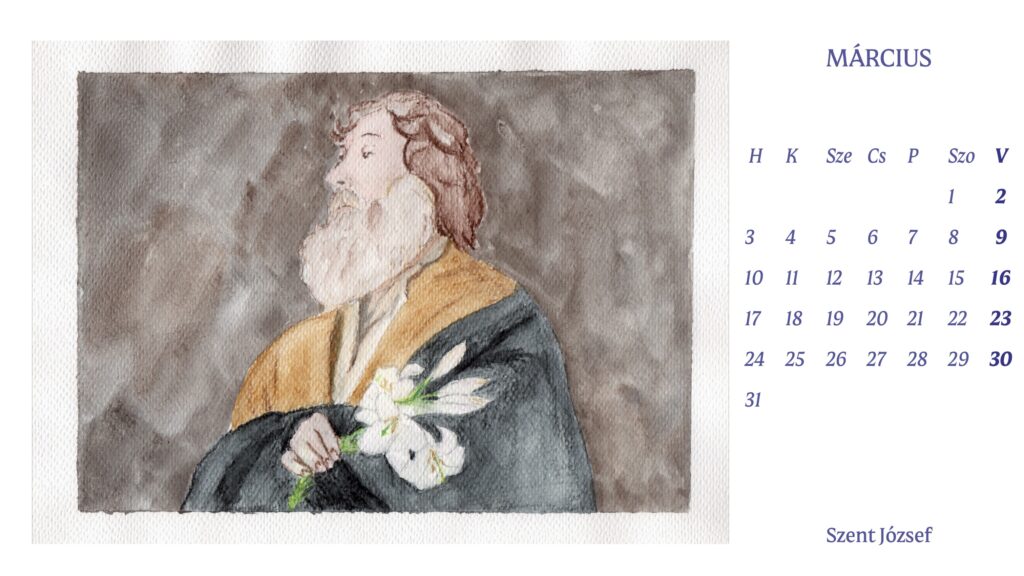 MÁRCIUS
H K Sze Cs P Szo V
1 2
3 4 5 6 7 8 9
10 11 12 13 14 15 16
17 18 19 20 21 22 23
24 25 26 27 28 29 30
31
Szent József